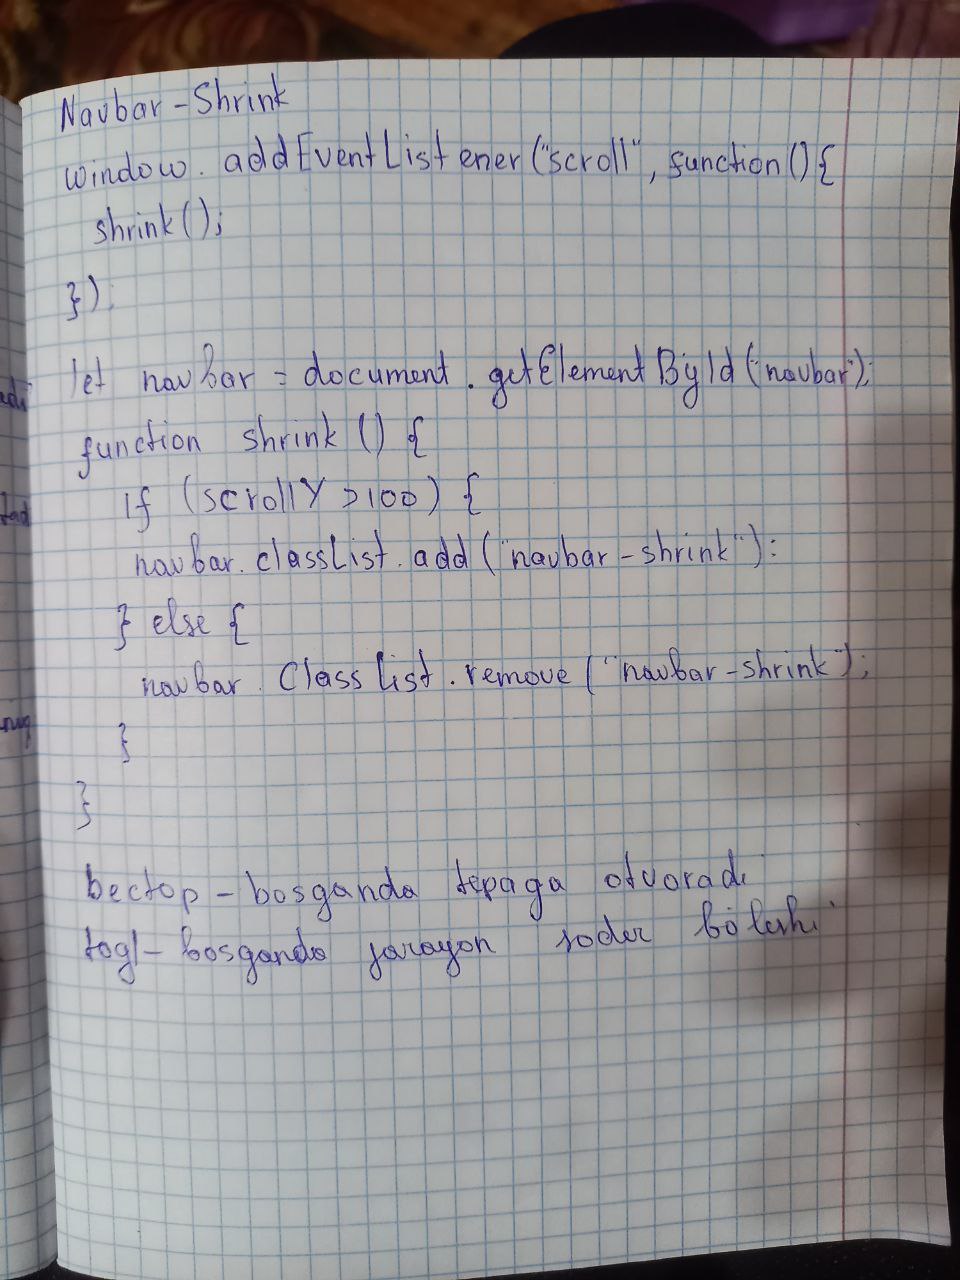 Navbar-Shrink
window.addEventListener("scroll", function(){
shrink();
});
let navbar = document.getElementById("navbar");
function shrink () {
If (scrollY > 100) {
navbar.classList.add("navbar-shrink"):
} else {
navbar.ClassList.remove("navbar-shrink");
}
}
bectop - bosganda tepaga otvoradi
togl - bosganda jarayon soder bòlishi